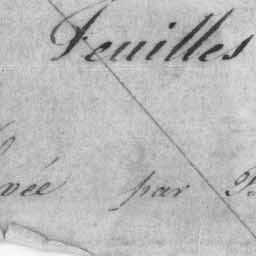 Feuilles
vée par